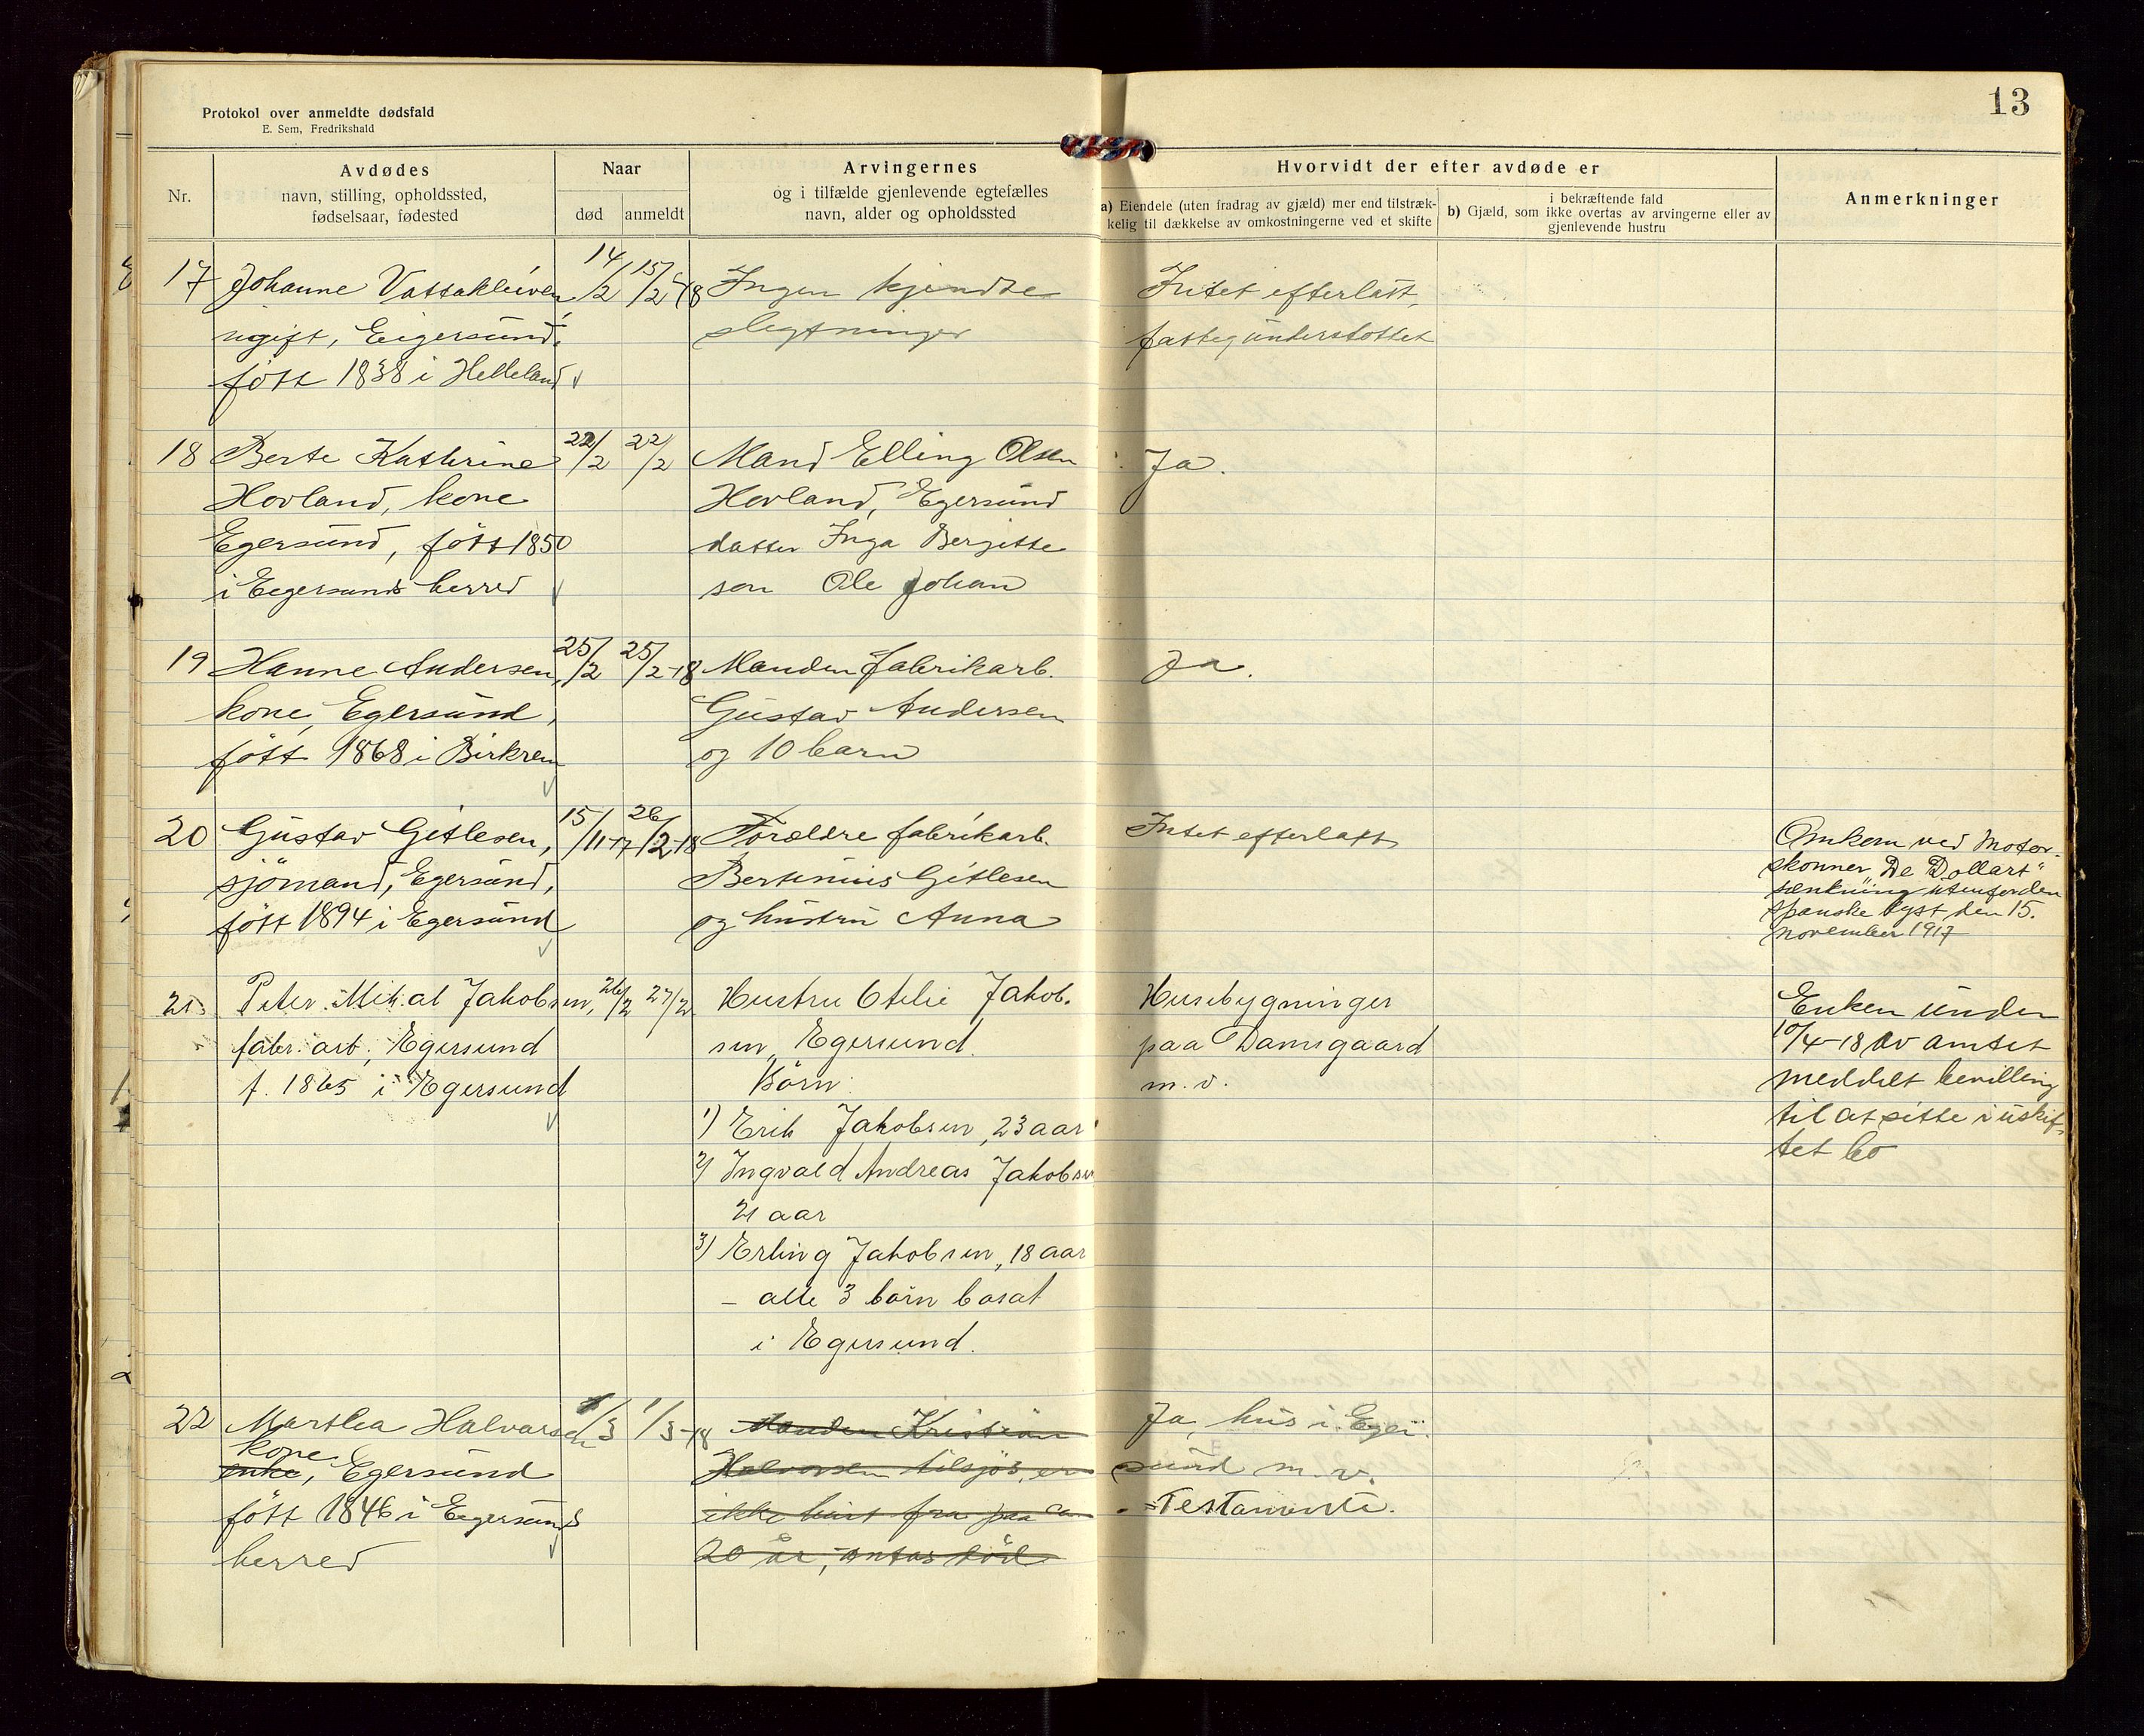 Protokol over anmeldte dødsfald
E. Sem, Fredrikshald
13
Nr.
Avdødes
navn, stilling, opholdssted,
fødselsaar, fødested
Naar
død
anmeldt
Arvingernes
og i tilfælde gjenlevende egtefælles
navn, alder og opholdssted
Hvorvidt der efter avdøde er
a) Eiendele (uten fradrag av gjæld) mer end tilstræk-
kelig til dækkelse av omkostningerne ved et skifte
i bekræftende fald
b) Gjæld, som ikke overtas av arvingerne eller av
gjenlevende hustru
Anmerkninger
17 Johanne Vassakleiven 14/2 15/2-18 Ingen kjendte Intet efterlatt,
ugift, Eigersund, slegtninger fattigunderstøttet
født 1838 i Helleland
18 Berte Kathrine 22/2 22/2 Mand Elling Olsen Ja.
Hovland, kone Hovland, Egersund
Egersund, født 1850 datter Inga Bergitte
i Eegersunds herred søn Ole Johan
19 Hanne Andersen, 25/2 25/2-18 Manden fabrikarb. Ja.
kone, Egersund, Gustav Andersen
født 1868 i Birkrem og 10 barn
20 Gustav Gitlesen, 15/11-17 26/2-18 Forældre fabrikarb. Intet efterlatt
sjømand, Egersund, Bertinius Gitlesen
født 1894 i Egersund og hustru Anna
Omkom ved Motor-
skonner "De Dollart"
sænkning utenfor den
spanske kyst den 15.
november 1917
21. Peter Mikal Jakobsen, 26/2 27/2 Hustru Otelie Jakob- Husebygninger Enken under
fabr. arb., Egersund sen, Egersund. paa Damsgaard 10/4-18 av amtet
f. 1865 i Egersund Børn: m. v. meddelt bevilling
1) Erik Jakobsen, 23 aar til at sitte i uskif-
2) Ingvald Andreas Jakobsen tet bo
21 aar
3) Erling Jakobsen, 18 aar
- alle 3 børn bosat
i Egersund.
22 Marthea Halvorsen 1/3 1/3-18 Manden Kristian Ja, hus i Eger-
kone
enke, Egersund Halvorsen tilsjøs, er sund m. v.
født 1846 i Eegersunds ikke hørt fra paa ca = Testamente.
herred 20 år, antas død